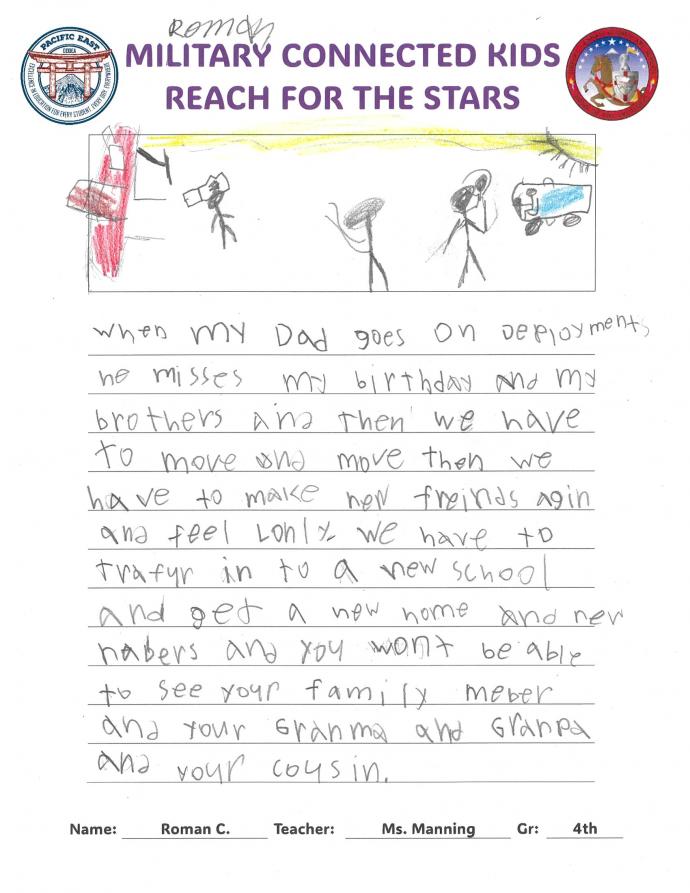 Roman
PACIFIC EAST
DODEA
EXCELLENCE IN EDUCATION FOR EVERY STUDENT, EVERY DAY, EVERYWHERE
MILITARY CONNECTED KIDS
REACH FOR THE STARS
when my Dad goes on Deployments
he misses my birthday and my
brothers and then we have
to move and move then we
have to make new freinds agin
and feel Lonly. we have to
trafyr in to a new school
and get a new home and new
nabers and you wont be able
to see your family meber
and your Granma and Granpa
and your coysin.
Name: Roman C. Teacher: Ms. Manning Gr: 4th